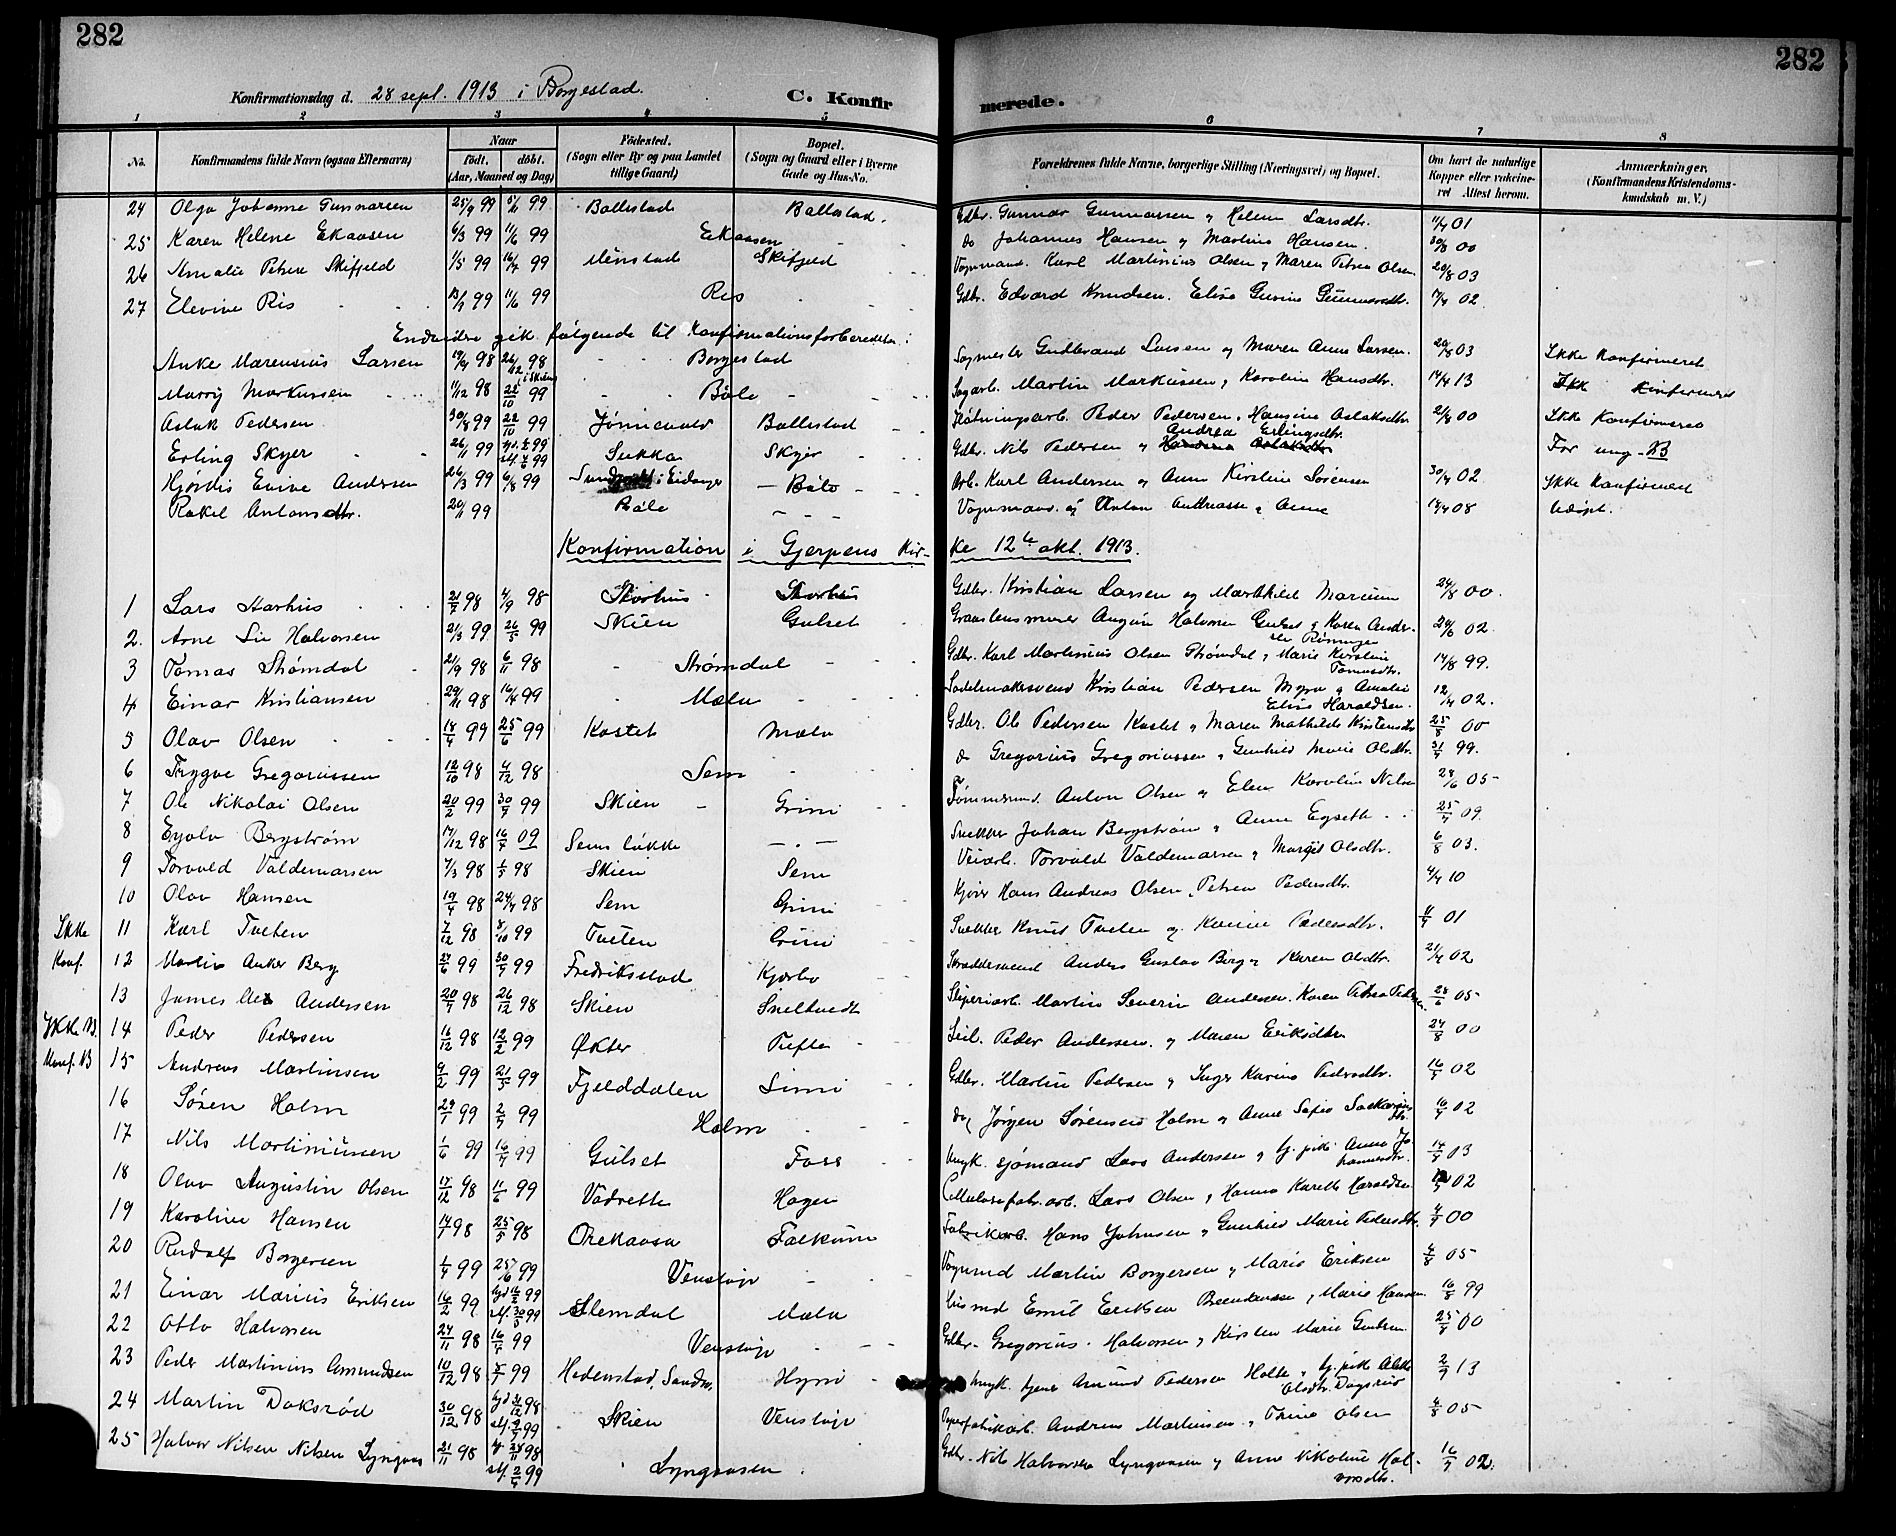 282
282
Konfirmationsdag d. 28 sept. 1913 i Borgestad.
C. Konfir
merede.
1 2 3 4 5 6 7 8
No.
Konfirmandens fulde Navn (ogsaa Efternavn)
Naar
födt. döbt.
(Aar, Maaned og Dag)
Födested.
(Sogn eller By og paa Landet
tillige Gaard)
Bopæl.
(Sogn og Gaard eller i Byerne
Gade og Hus-No.
Forældrenes fulde Navne, borgerlige Stilling (Næringsvei) og Bopæl.
Om havt de naturlige
Kopper eller vakcine-
ret Attest herom.
Anmærkninger,
(Konfirmandens Kristendoms-
kundskab m. V.)
24 Olga Johanne Gunnarsen 25/9 99 5/11 99 Ballestad Ballestad. Gdbr. Gunnar Gunnarsen og Helene Larsdtr. 11/9 01
25 Karen Helene Ekaasen 6/3 99 11/6 99 Eikaasen do Johannes Hansen og Martine Hansen. 30/8 00
26 Amalie Petrea Skifjeld 1/5 99 16/7 99 Menstad Skifjeld Vognmand. Karl Martinius Olsen og Maren Petrea Olsen 20/8 03
27 Elevine Ris 13/2 99 11/6 99 Ris Gdbr. Edvard Knudsen. Elise Gurine Gunnarsdtr. 17/9 02
Endvidre gik følgende til konfirmationsforberedelse:
Anke Marensius Larsen 19/9 98 26/12 98 Borgestad Sagmester Gudbrand Larsen og Maren Anne Larsen. 20/8 03 Ikke konfirmeret
i Skien
Marry Markussen 11/12 98 22/10 99 Bøle Sagarb. Martin Markussen, Karoline Hansdtr. 14/4 13 Ikke konfirmeret
Aslak Pedersen 30/8 99 22/10 99 Jønnevald Ballestad Fløtningsarb. Peder Pedersen, Hansine Aslaksdtr. 2/8 00 Ikke konfirmeret
Andrea Erlingsdtr.
Erling Skyer 26/11 99 Sukka Skyer Gdbr. Nils Pedersen og Hansine Aslaksdtr. For ung. - B
Hjørdis Evine Andersen 26/3 99 6/8 99 i Eidanger - Bøle - Arb. Karl Andersen og Anne Kirstine Sørensen 30/9 02 Ikke konfirmeret
Rakel Antonsdtr. 20/11 99 Bøle - - - Vognmand og Anton Andreasse og Anne 14/9 08 Udøpt.
Konfirmation i Gjerpens Kir-
ke 12te okt. 1913.
1 Lars Aarhus 21/7 98 4/9 98 Gdbr. Kristian Larsen og Marthilde 24/8 00.
2. Arne Lie Halvorsen 21/3 99 26/5 99 Skien Gulset Halvorsen Gulset og Karen Ander- 24/6 02.
3 Tomas Strømdal 21/9 98 6/11 98 Strømdal Gdbr. Karl Martinius Olsen Strømdal, Marie Kirstine 14/8 99.
Tomasdtr.
4 Einar Kristiansen 29/11 98 16/4 99 Mæla Sadelmakersvend Kristian Pedersen Myra og Amalie 12/4 02.
Elise Haraldsen.
5 Olav Olsen 18/4 99 25/6 99 Kastet Mæla Gdbr. Ole Pedersen Kastet og Maren Mathilde Kirstensdtr 25/8 00
6 Trygve Gregoriussen 12/10 98 4/12 98 Sem do Gregorius Gregoriussen og Gunhild Marie Olsdtr. 31/7 99.
7 Ole Nikolai Olsen 20/2 99 30/7 99 Skien - Grini Tømmermd. Anton Olsen og Elen Karoline Nilsen 28/6 05
8 Eyolv Bergstrøm 17/12 98 16/7 09 Sems løkke - . - Snekker Johan Bergstrøm, Anne Egseth 25/7 09.
9 Torvald Valdemarsen 7/3 98 1/5 98 Skien Sem Veiarb. Torvald Valdemarsen og Margit Olsdtr. 6/8 03.
10 Olav Hansen 19/4 98 24/4 98 Sem Grini Kjører Hans Andreas Olsen, Petrea Pedersdtr. 4/9 10
Ikke 11 Karl Tveten 7/12 98 8/10 99 Tveten Grini Snekker Knut Tveten og Karine Pedersdtr. 11/9 01
Konf. 12 Martin Anker Berg 24/6 99 30/7 99 Fredriksstad Kjørbo Skræddersvend Anders Gustav Berg og Karen Olsdtr. 21/4 02
13 James Alex Andersen 20/7 98 26/12 98 Skien Sneltvedt Sliperiarb. Martin Severin Andersen. Karen Petrea Peders. 28/6 05
Ikke B. 14 Peder Pedersen 16/12 98 12/2 99 Økter Tufte Seil. Peder Andersen. og Maren Eriksdtr. 24/8 00
Konf. B 15 Andreas Martinsen 9/2 99 21/5 99 Fjelddalen Limi Gdbr. Martin Pedersen og Inger Karine Pedersdtr. 16/7 02
16 Søren Holm 29/7 99 2/7 99 Holm do Jørgen Sørensen Holm og Anne Sofie 16/7 02
17 Nils Martiniussen 1/6 99 16/7 99 Gulset Foss Ungk. sjømand Lars Andersen og tj. pike Anna Jo- 14/9 03
hannesdtr.
18 Olav Augustin Olsen 17/12 98 11/6 99 Vadrette Hagen Cellulosefabr. arb. Lars Olsen, Hanna Karethe Haraldsen 02
19 Karoline Hansen 14/7 98 25/5 98 Falkum Fabrikarb. Hans Johnsen og Gunhild Marie Pedersdtr. 4/9 00
20 Rudolf Borgersen 1/4 99 25/6 99 Venstøp Vognmd Martin Borgersen og Marie Eriksen 4/8 05
21 Einar Marius Eriksen 16/2 99 Slemdal Mæla Husmd Emil Eriksen og Marie Hansen. 16/8 99
22 Otto Halvorsen 24/11 98 16/4 99 Venstøp Gdbr. Gregorius Halvorsen og Kirsten Marie 25/8 00
23 Peder Martinius Amundsen 10/12 98 5/7 99 Hedenstad, Sandsv. Hyni Ungk. tjener Amund Pedersen Holte, tj. pike Alette 2/9 13
Olsdtr. Dagsrud
24 Martin Daksrød 30/12 98 Skien Venstøp Papirfabrikarb. Andreas Martinsen og Trine Olsen 4/8 05
25 Halvor Nilsen Nilsen Lyngaas 21/11 98 Lyngaasen Gdbr. Nils Halvorsen Lyngaasen og Anne Nikoline Hal- 16/9 02.
vorsdtr.